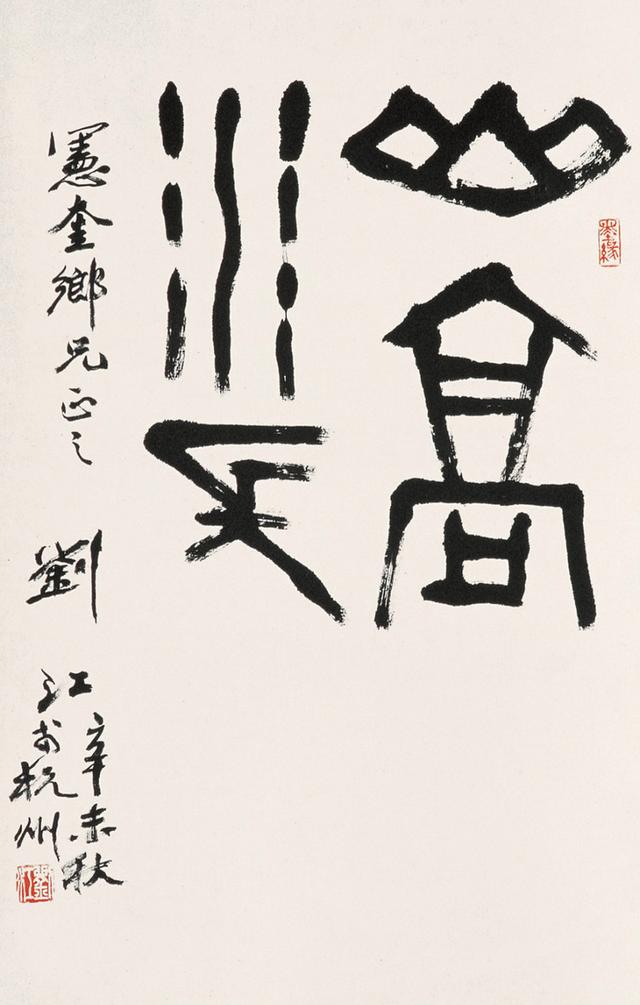 墨緣
山高
水長
憲奎鄉兄正之
辛未秋
劉江
杭州
劉江